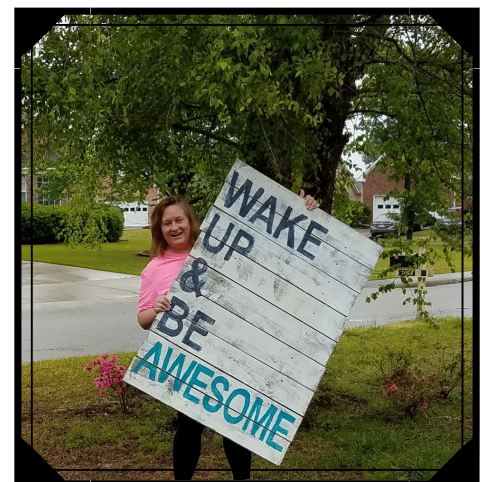 WAKE
UP
&
BE
AWESOME